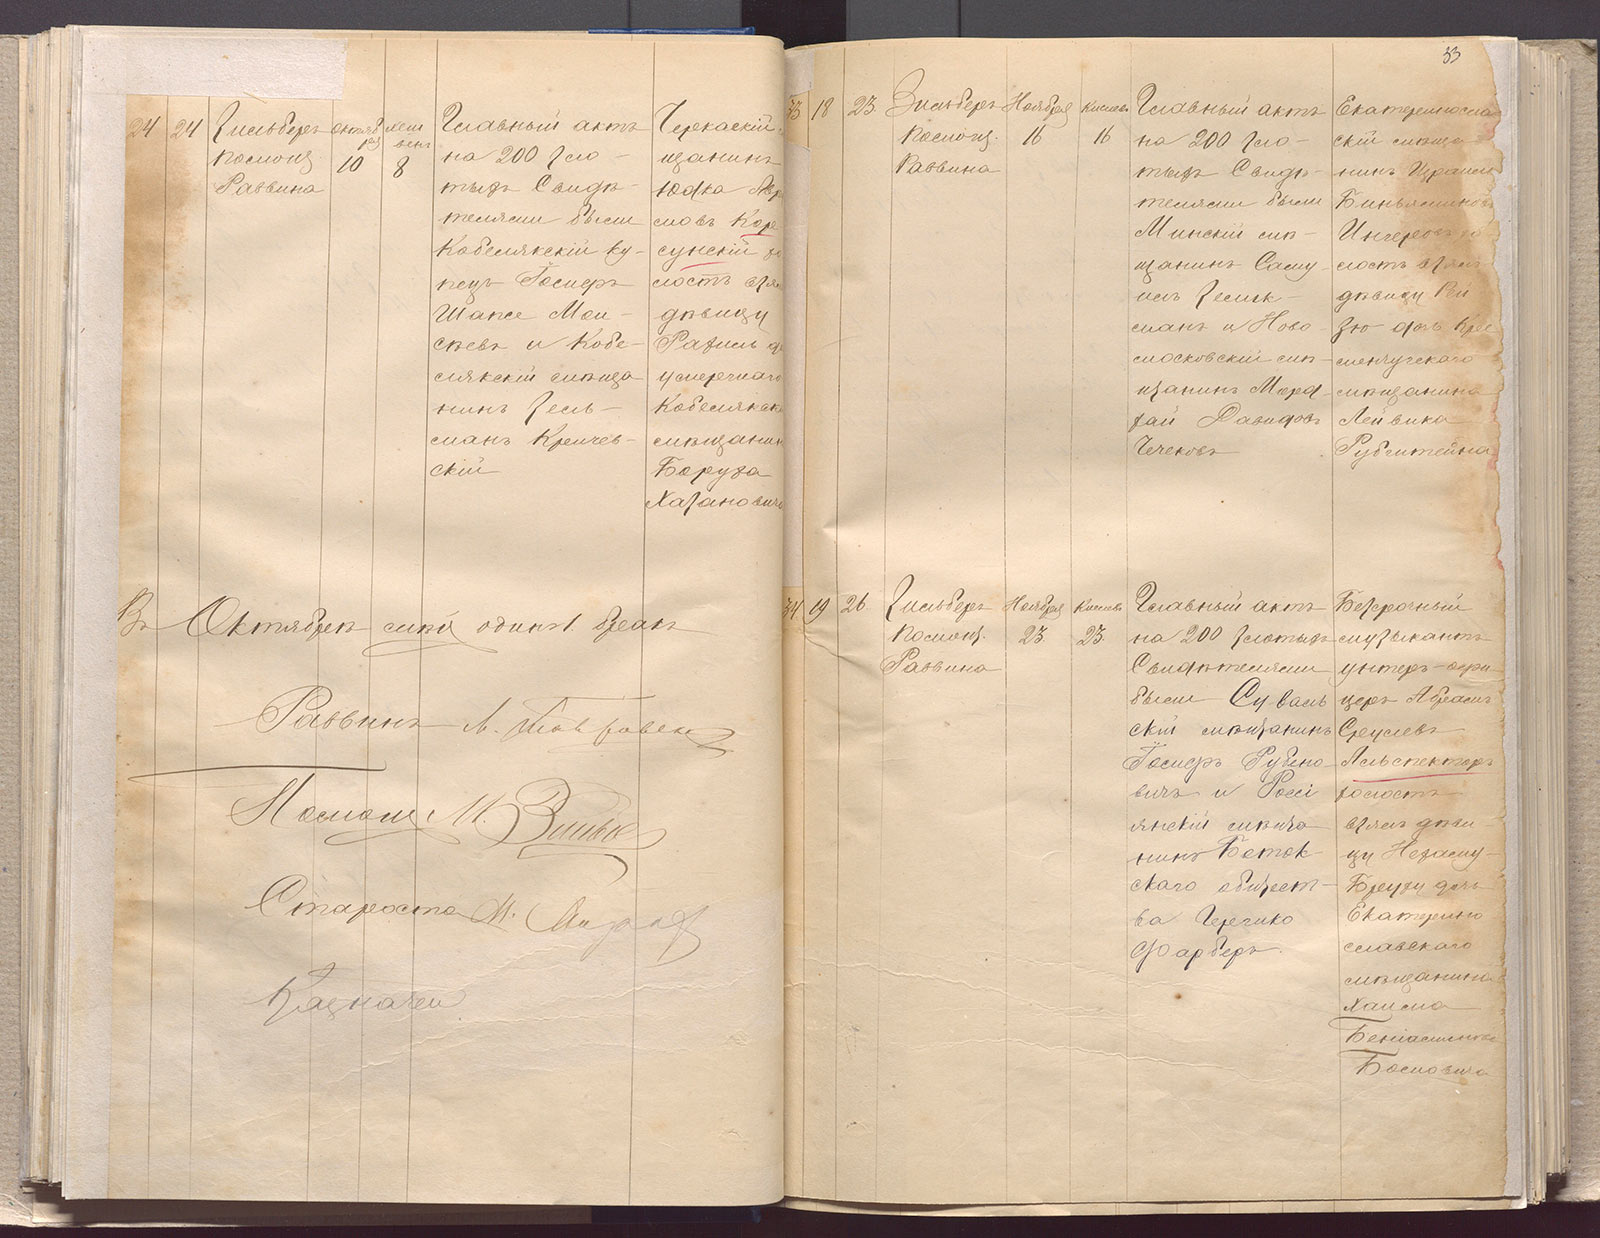 24
24
Зильберъ
помощ.
Раввина
Октяб
ря
10
Хеш
венъ
8
Главный актъ
на 200 зло-
тыхъ Свидѣ-
телями были
Кобелякскій ку-
пецъ Іосифъ
Шапсе Мои-
сѣевъ и Кобе-
лякскій мѣща
нинъ Зель-
манъ Кричев-
скій
Черкаскій
щанинъ
Юдка
мовъ Кор
сунскій
лостъ взял
дѣвицу
Рахиль
умершаго
Кобелякска
мѣщанин
Боруха
Хазановича
Въ Октябрѣ мцѣ одинъ 1 бракъ
Раввинъ
Помощ. М.
Староста М.
Казначей
33
33
18
23
Зильберъ
помощ.
Раввина
Ноября
16
Кислевъ
16
Главный актъ
на 200 зло-
тыхъ Свидѣ-
телями были
Минскій мѣ-
щанинъ Саму-
илъ Зелик-
манъ и Ново-
московскій мѣ-
щанинъ Морд-
хай Давидовъ
Чечековъ
Екатериносла
скій мѣща-
нинъ Израиль
Биньяминовъ
лостъ взялъ
дѣвицу Рей
зю дочь Кре
менчугскаго
мѣщанина
Лейвика
Рубинтейна
34
19
26
Зильберъ
помощ.
Раввина
Ноября
23
Кислевъ
23
Главный актъ
на 200 злотыхъ
Свидѣтелями
были Суваль
скій мѣщанинъ
Іосифъ Рубино
вичъ и Россі
янскій мѣща
нинъ
скаго общест-
ва Герчико
Фарберъ.
Безсрочный
музыкантъ
унтеръ-офи-
церъ Абрамъ
Сруліевъ
Альспекторъ
холостъ
взялъ дѣви-
цу Нехаму-
Брейну дочь
Екатерино
славскаго
мѣщанина
Хаима
Беніаминова